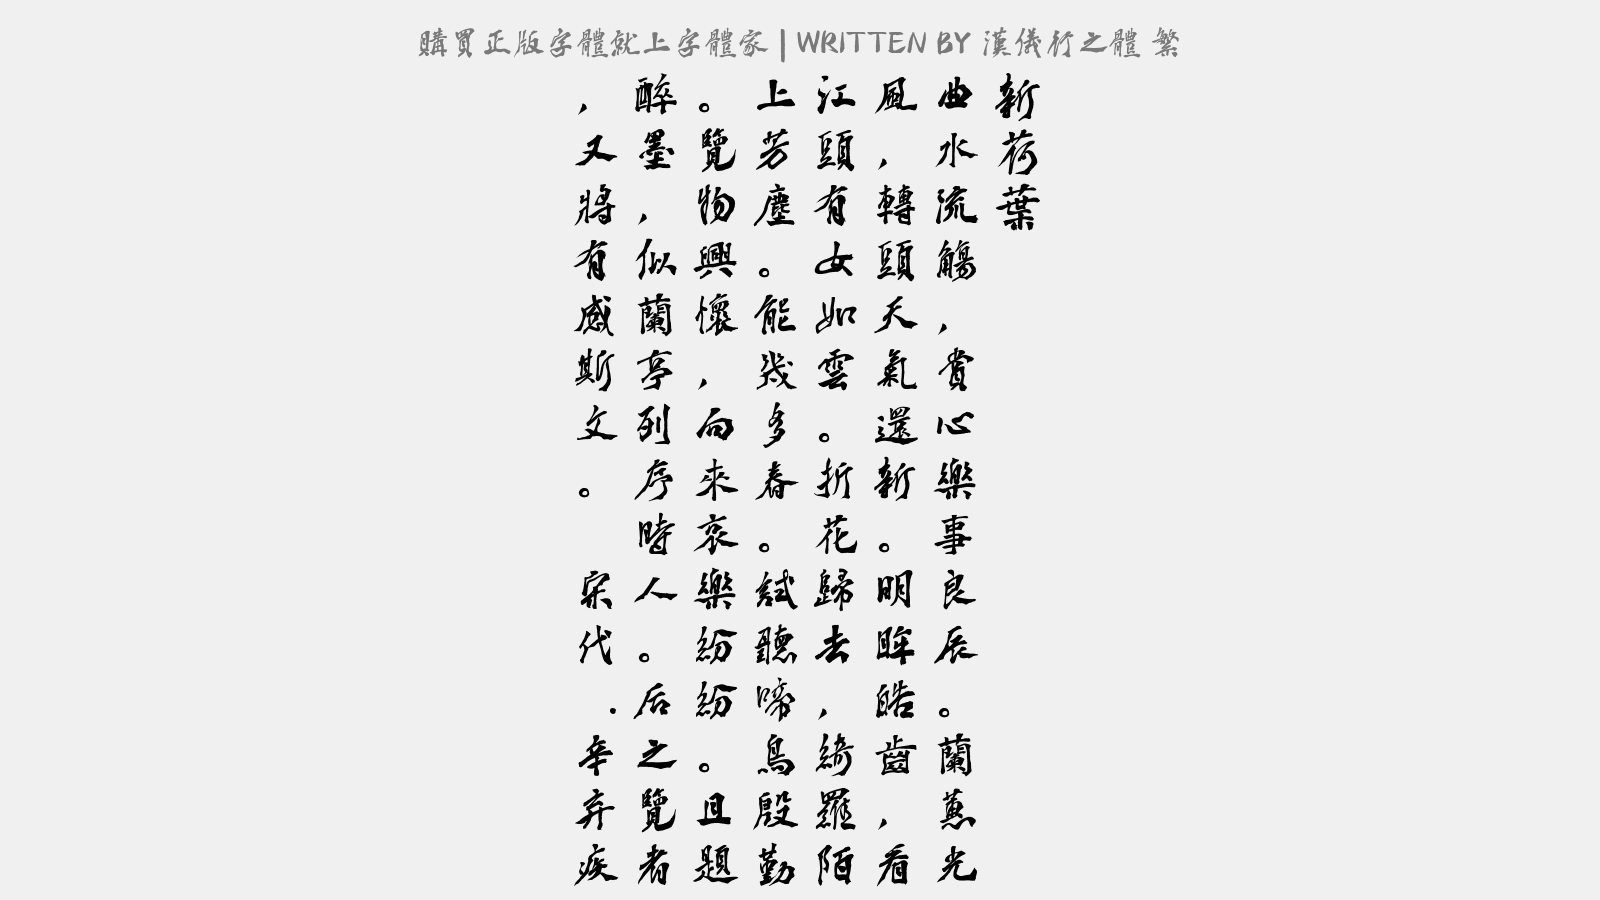 購買正版字體就上字體家 | WRITTEN BY 漢儀行之體 繁
新荷葉
曲水流觴，賞心樂事良辰。蘭蕙光
風，轉頭天氣還新。明眸皓齒，看
江頭有女如雲。折花歸去，綺羅陌
上芳塵。能幾多春。試聽啼鳥殷勤
。覽物興懷，向來哀樂紛紛。且題
醉墨，似蘭亭列序時人。后之覽者
，又將有感斯文。 宋代.辛弃疾